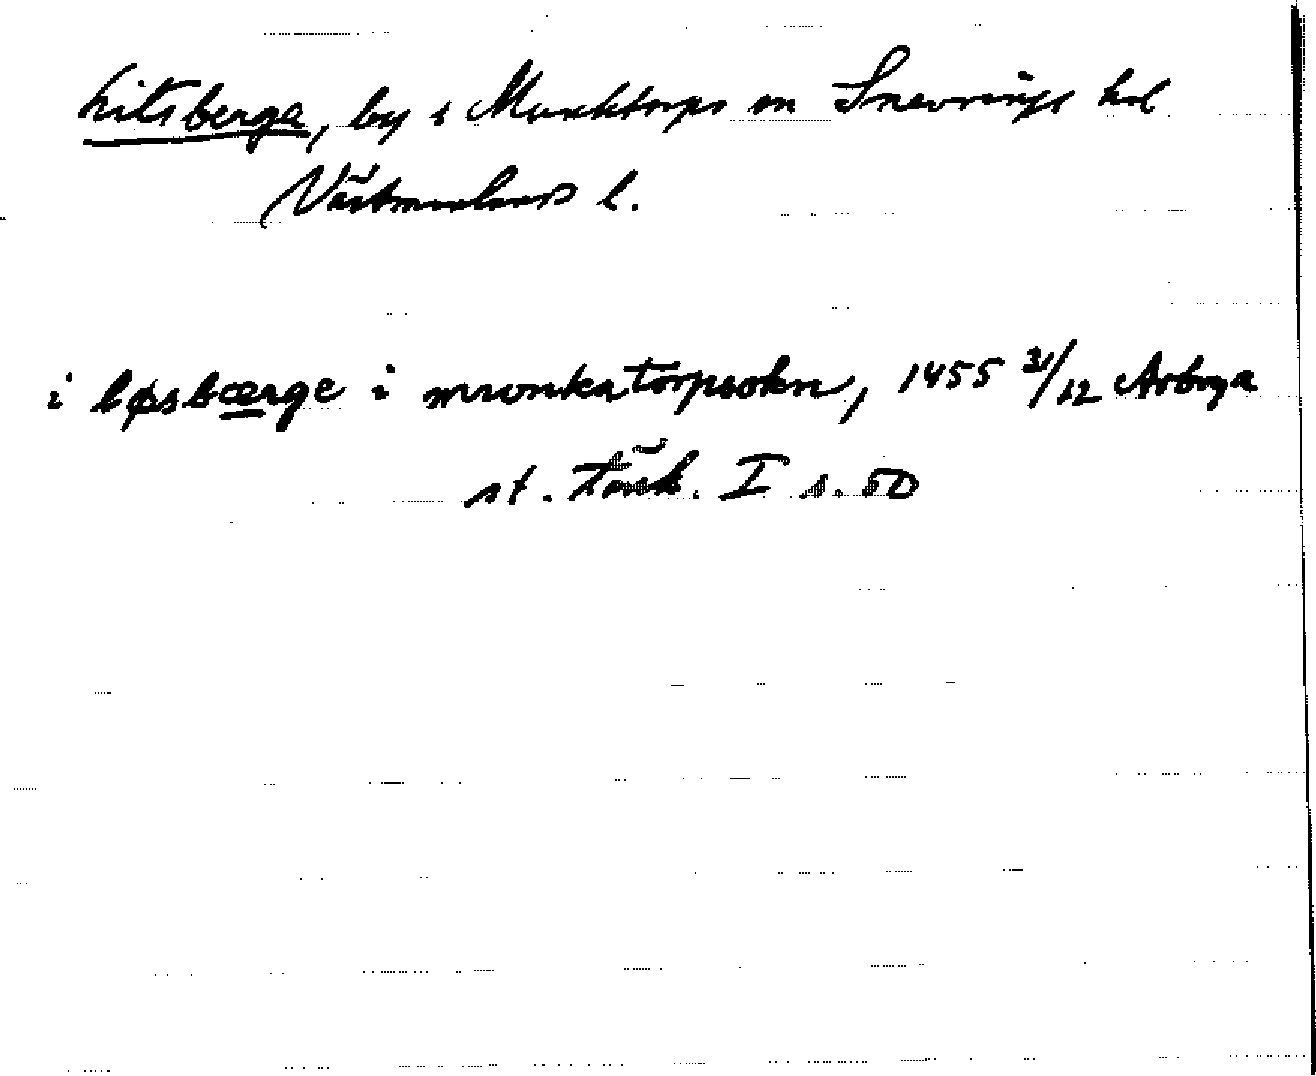 Litsberga, by i Munktorps sn Snevringe hd
Västmanlands l.
i løsbærge i mwnkatorpsokn, 1455 31/12 Arboga
st. tänk. I s. 50